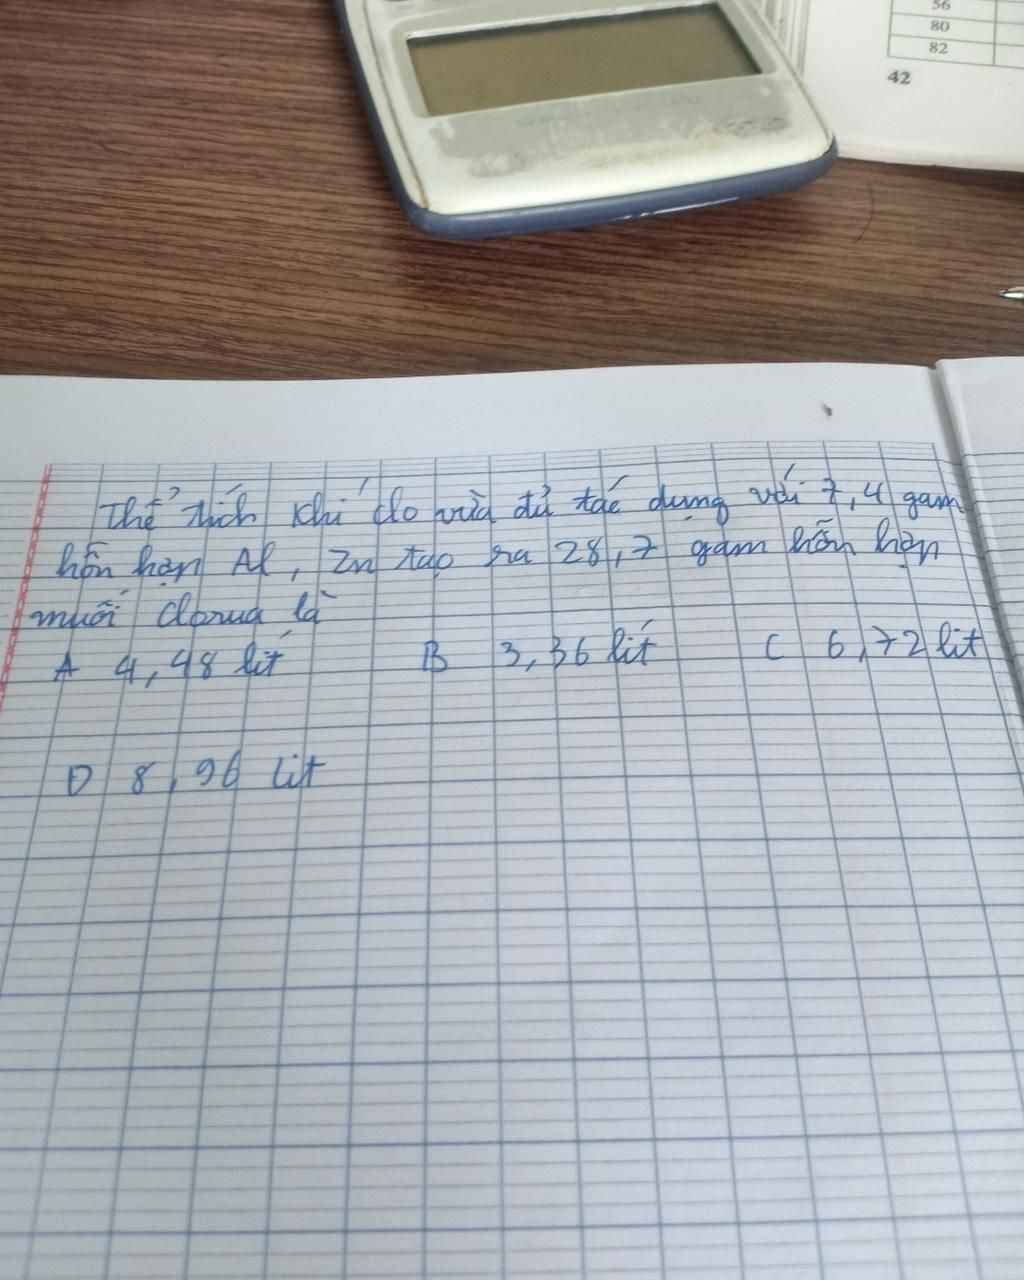 56
80
82
42
Thể tích khí clo vừa đủ tác dụng với 7,4 gam
hỗn hợp Al, Zn tạo ra 28,7 gam hỗn hợp
muối clorua là
A 4,48 lít B 3,36 lít C 6,72 lit
D 8,96 lit